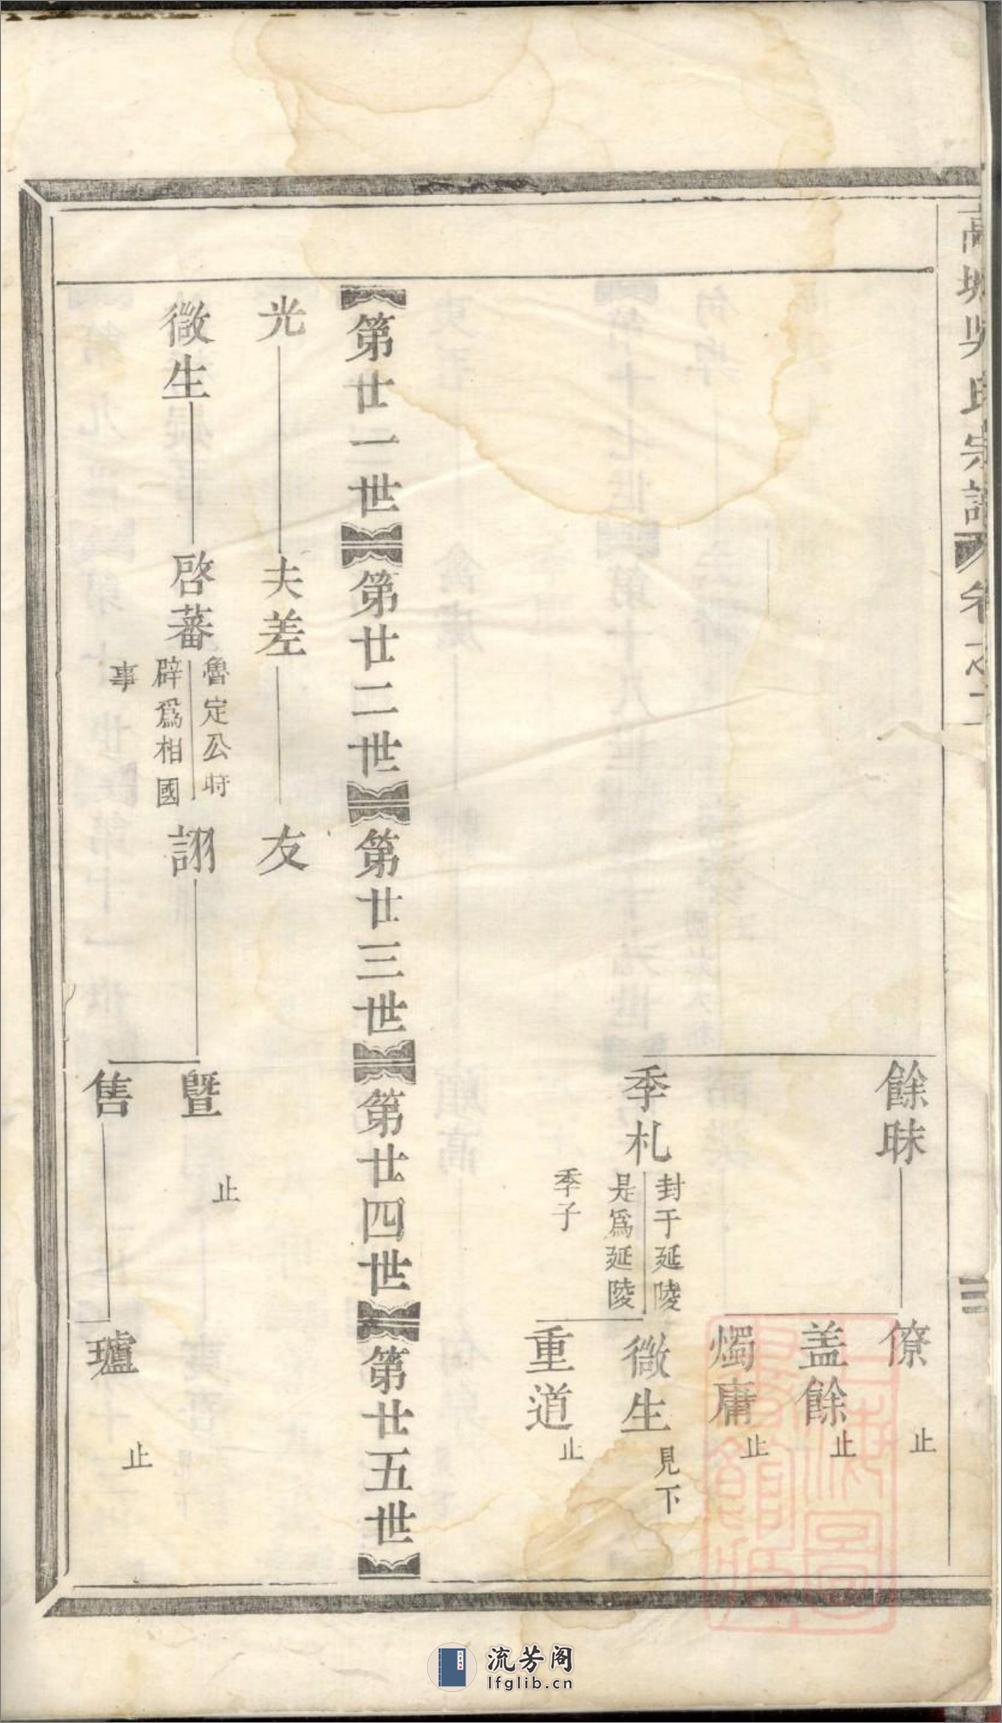 高塘吳氏宗譜 卷之二
餘昧
僚 止
盖餘 止
燭庸 止
季札
封于延陵
是爲延陵
季子
微生 見下
重道 止
第廿一世 第廿二世 第廿三世 第廿四世 第廿五世
光 夫差 友
微生 啓蕃
魯定公時
辟爲相國
事
詡 曁 止
售 瓐 止
流芳阁
lfglib.cn